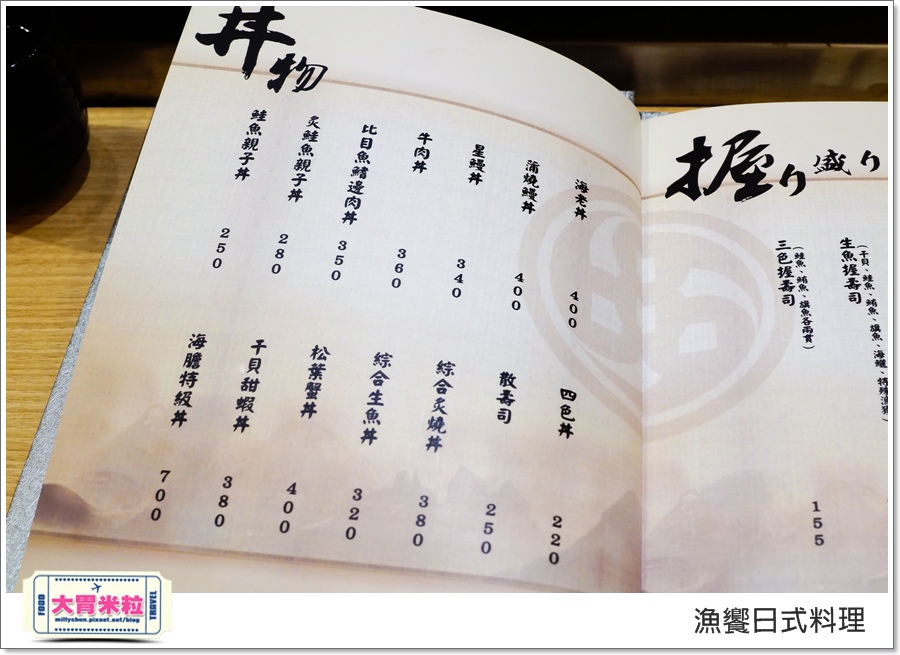 丼物
海老丼
400
蒲燒鰻丼
400
星鰻丼
340
牛肉丼
360
比目魚鰭邊肉丼
350
炙鮭魚親子丼
280
鮭魚親子丼
250
四色丼
220
散壽司
250
綜合炙燒丼
380
綜合生魚丼
320
松葉蟹丼
400
干貝甜蝦丼
380
海膽特級丼
700
握り盛り
生魚握壽司
(干貝、鮭魚、鮪魚、旗魚、海鱺、特殊漁獲)
三色握壽司
(鮭魚、鮪魚、旗魚各兩貫)
155
FOOD
大胃米粒
millychun.pixnet.net/blog
TRAVEL
漁饗日式料理